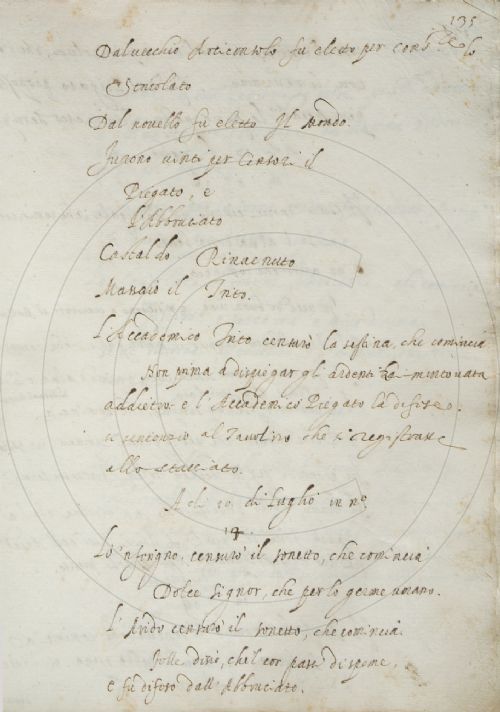 135
Dal vecchio Articonsolo fu eletto per cons.re lo
Stritolato
Dal novello fu eletto Il Mondo.
Furono vinti per Censori il
Piegato, e
l'Abbruciato
Castaldo Rinvenuto
Massaio il Into.
L'Accademico Into censurò la sestina, che comincia
Non prima a dispiegar gli ardenti
e l'Accademico Piegato la difese.
al Tavolino che si registrasse
allo stacciato.
A di 20. di Luglio in n.o
14.
Lo 'nferigno, censurò il sonetto, che comincia
Dolce Signor, che per lo germe umano.
L'Arido censurò il sonetto, che comincia.
Folle disio, ch'il cor pasci di speme,
e fu difeso dall'Abbruciato.